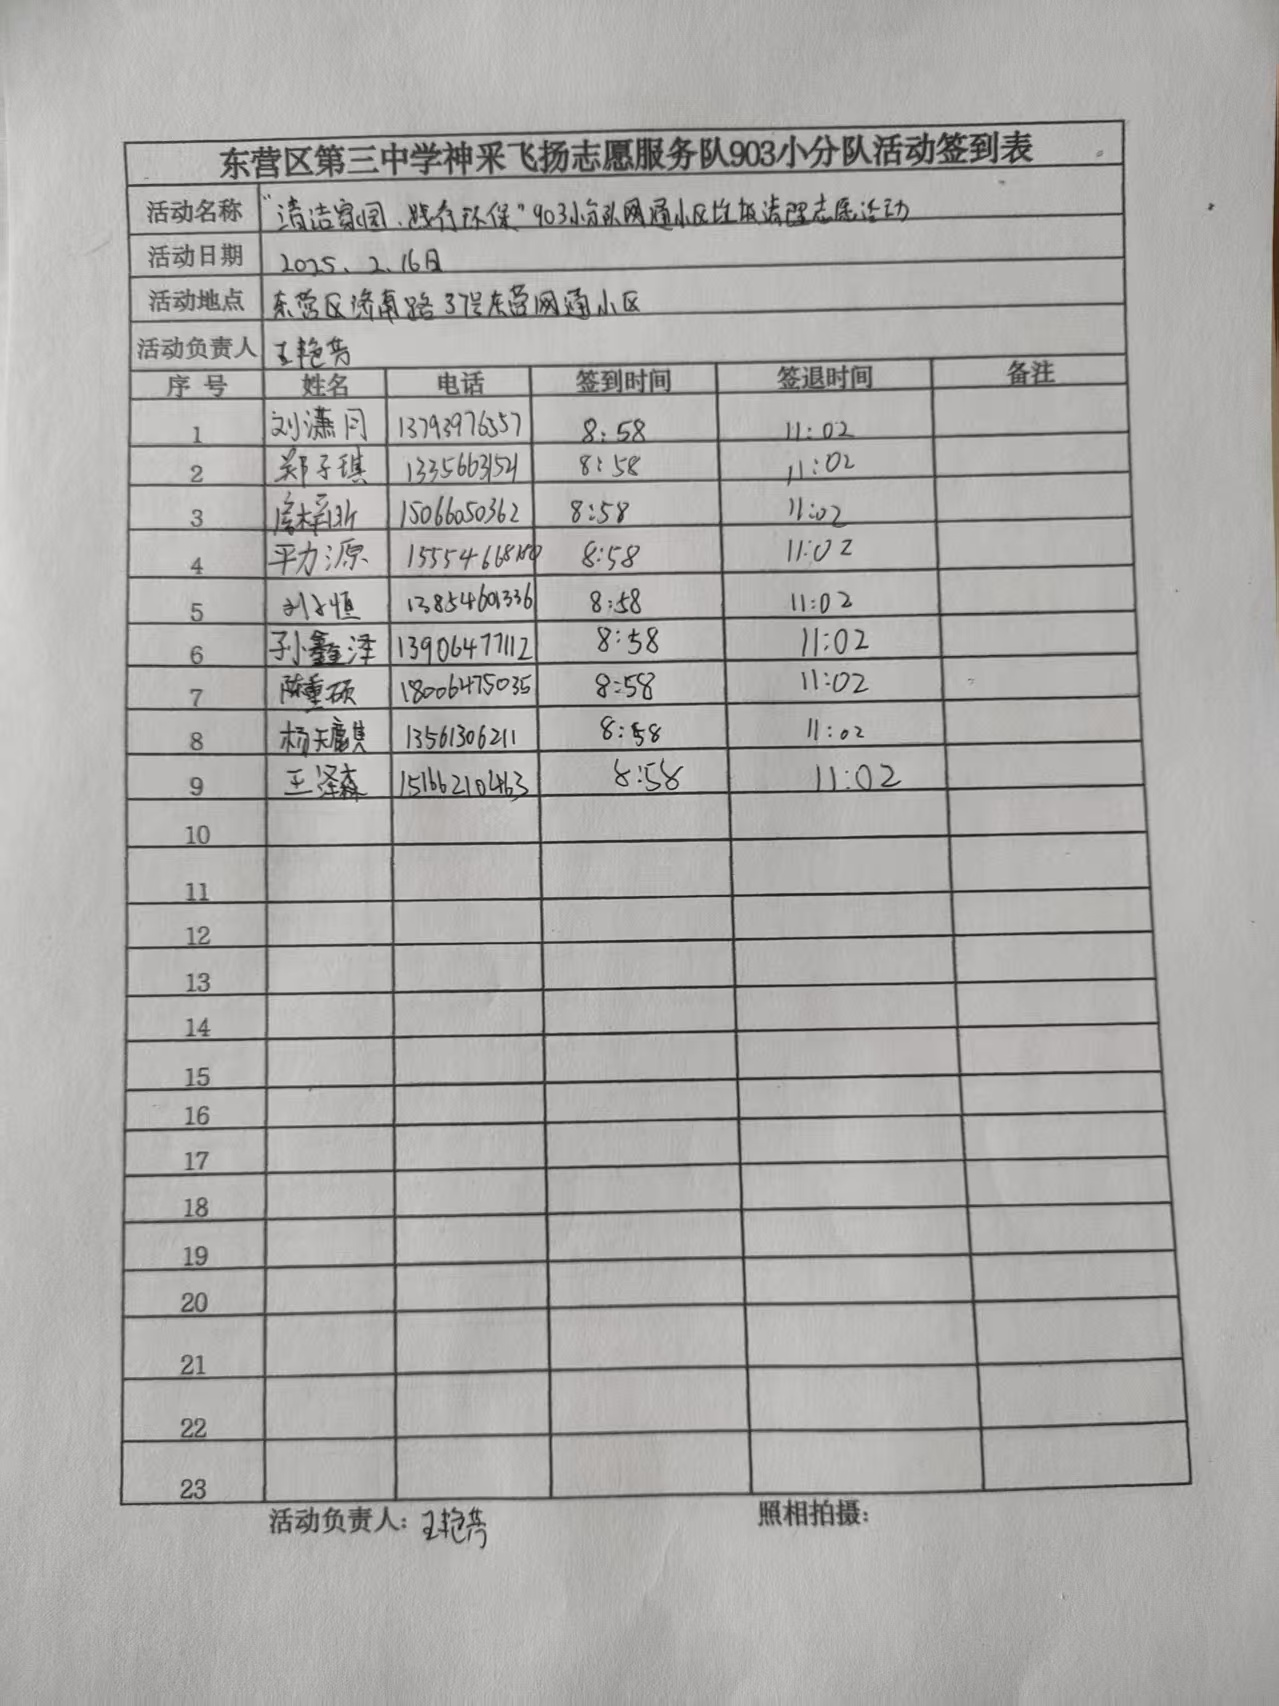 东营区第三中学神采飞扬志愿服务队903小分队活动签到表
活动名称 "清洁家园、践行环保"903小分队网通小区垃圾清理志愿活动
活动日期 2025、2、16日
活动地点 东营区济南路37号东营网通小区
活动负责人 王艳芳
序号 姓名 电话 签到时间 签退时间 备注
1 刘潇月 13793976557 8:58 11:02
2 郑子琪 8:58 11:02
3 15066050362 8:58 11:02
4 平力源 8:58 11:02
5 刘文恒 13854601336 8:58 11:02
6 孙鑫泽 13906477112 8:58 11:02
7 陈重硕 18006475035 8:58 11:02
8 杨天麒 13561306211 8:58 11:02
9 王泽森 15166210463 8:58 11:02
10
11
12
13
14
15
16
17
18
19
20
21
22
23
活动负责人: 王艳芳 照相拍摄: